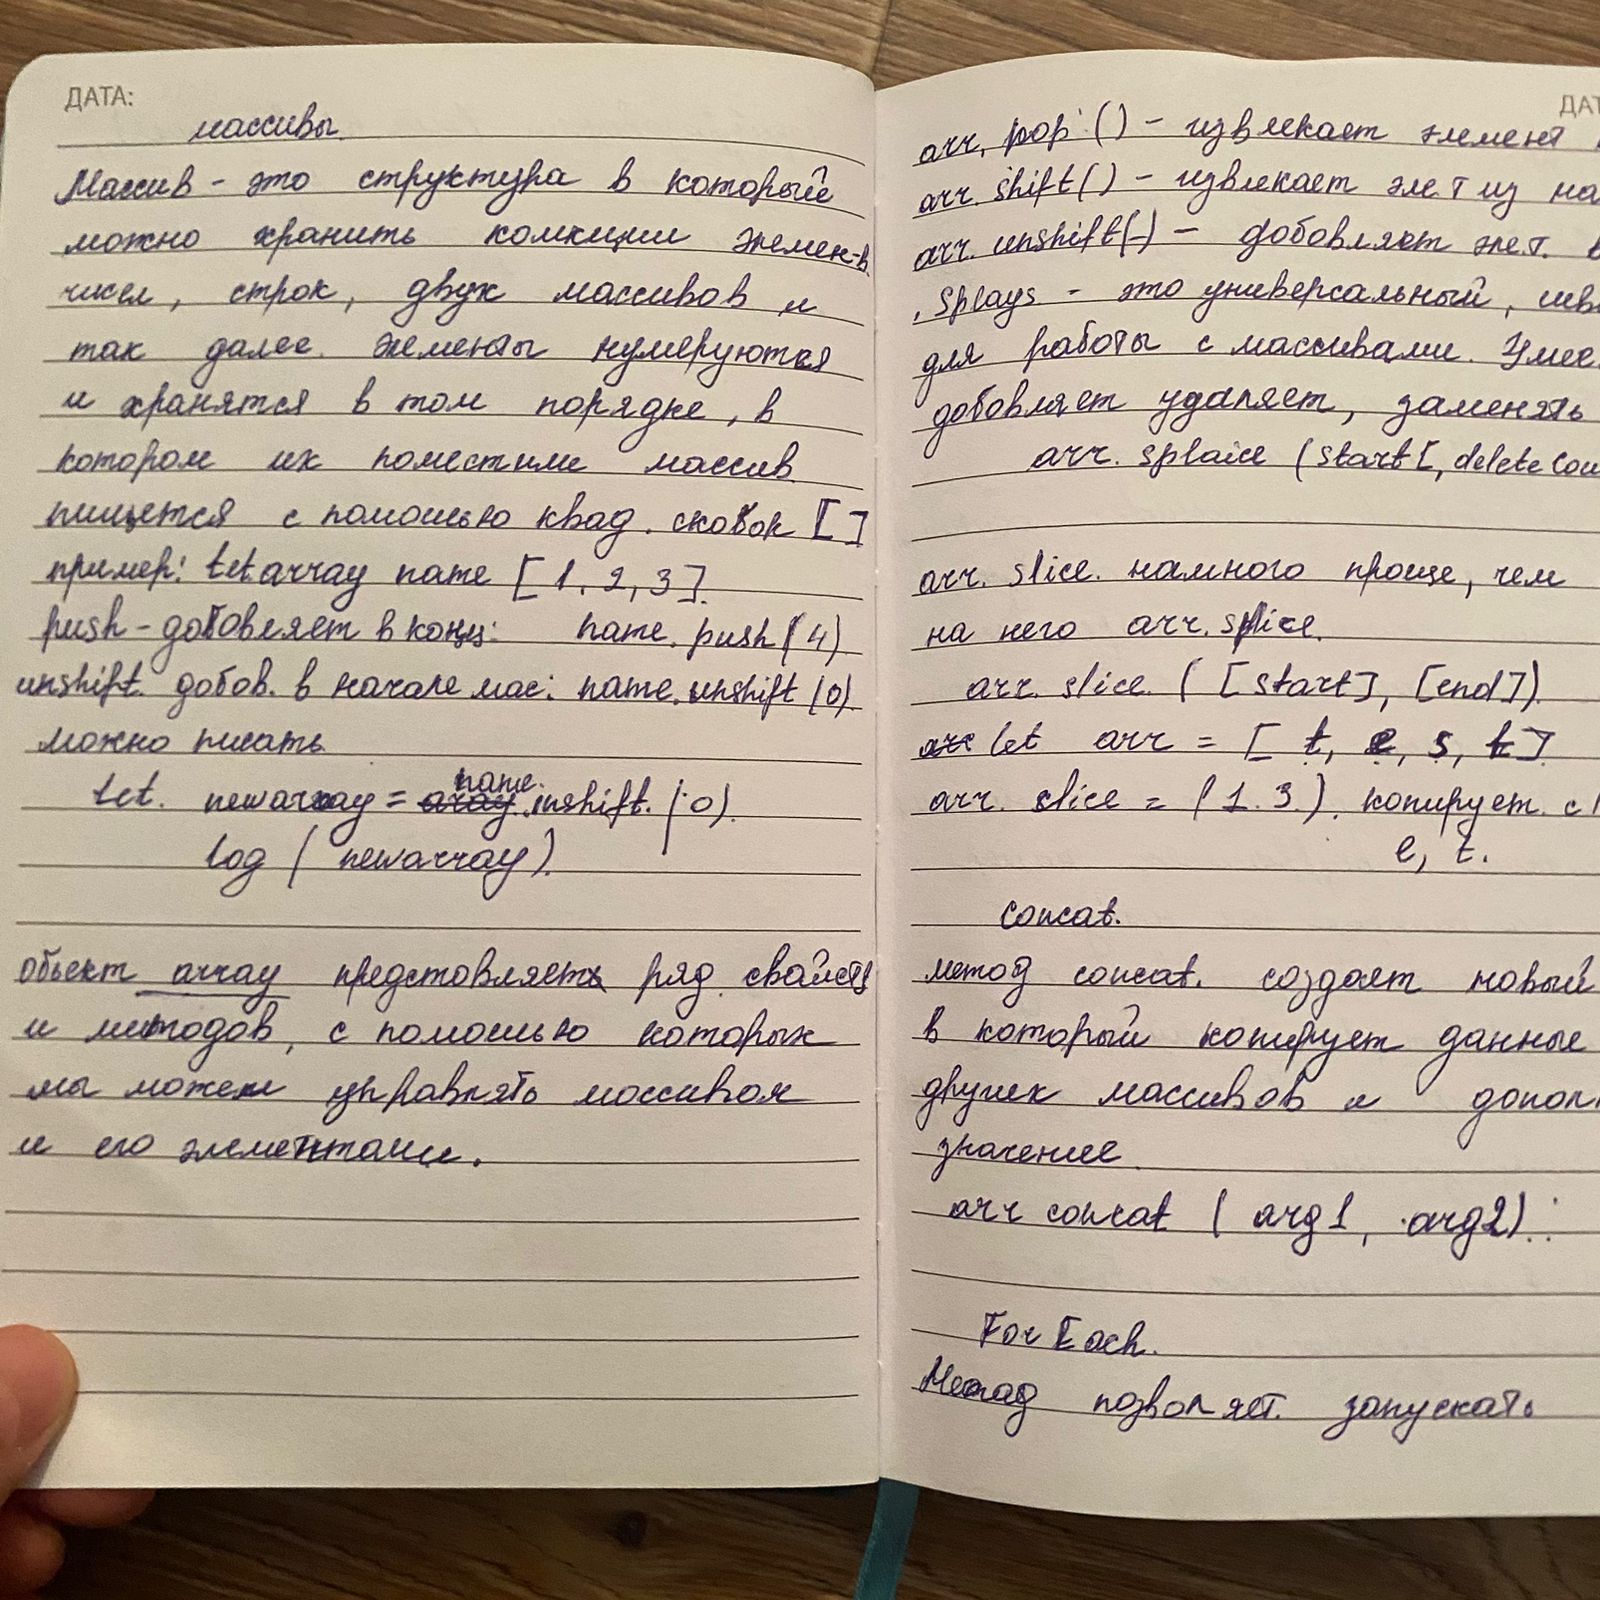 ДАТА:
массивы
Массив - это структура в которые
можно хранить комкции элемен-в.
чисел, строк, двух массивов и
так далее. Элементы нумеруются
и хранятся в том порядке, в
котором их поместили массив
пишется с помошью квад. скобок []
пример: let array name [1, 2, 3].
push - добовляет в конц: name. push (4)
unshift. добов. в начале мас: name. unshift (0)
можно писать
let. newarray = name. inshift. (0).
log ( newarray ).
объект array предстовляет ряд свойств
и методов, с помошью которых
мы можем управлять массивом
и его элементами.
ДАТ
arr. pop () - извлекает элемент
arr. shift () - извлекает элет из на
arr. unshift(-) - добовляет элет. в
. splays - это универсальный,
для работы с массивами. Умее
добовляет удаляет, заменять
arr. splaice (start [, deleteCou
arr. slice. намного проще, чем
на него arr. splice.
arr. slice. ( [start], [end]).
let arr = [ t, e, s, t ]
arr. slice = ( 1. 3. ). копирует. с 1
e, t.
Concat.
метод concat. создает новый
в который копирует данные
других массивов и допол
значение
arr concat ( arg1, arg2).
For Each.
Метод позволяет. запускать